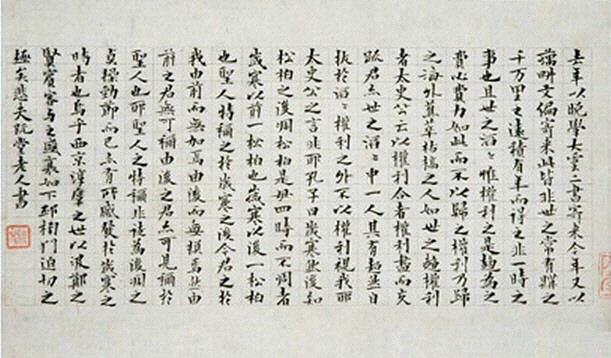 去年以晩學大雲二書寄來今年又以
藕耕文編寄來此皆非世之常有購之
千万里之遠積有年而得之非一時之
事也且世之滔〻惟權利之是趨爲之
費心費力如此而不以歸之權利乃歸
之海外蕉萃枯槁之人如世之趨權利
者太史公云以權利合者權利盡而交
疎君亦世之滔〻中一人其有超然自
拔於滔〻權利之外不以權利視我耶
太史公之言非耶孔子曰歲寒然後知
松柏之後凋松柏是毋四時而不凋者
歲寒以前一松柏也歲寒以後一松柏
也聖人特稱之於歲寒之後今君之於
我由前而無加焉由後而無損焉然由
前之君無可稱由後之君亦可見稱於
聖人也耶聖人之特稱非徒爲後凋之
貞操勁節而已亦有所感發於歲寒之
時者也烏乎西京淳厚之世以汲鄭之
賢賓客與之盛衰如下邳榜門迫切之
極矣悲夫阮堂老人書